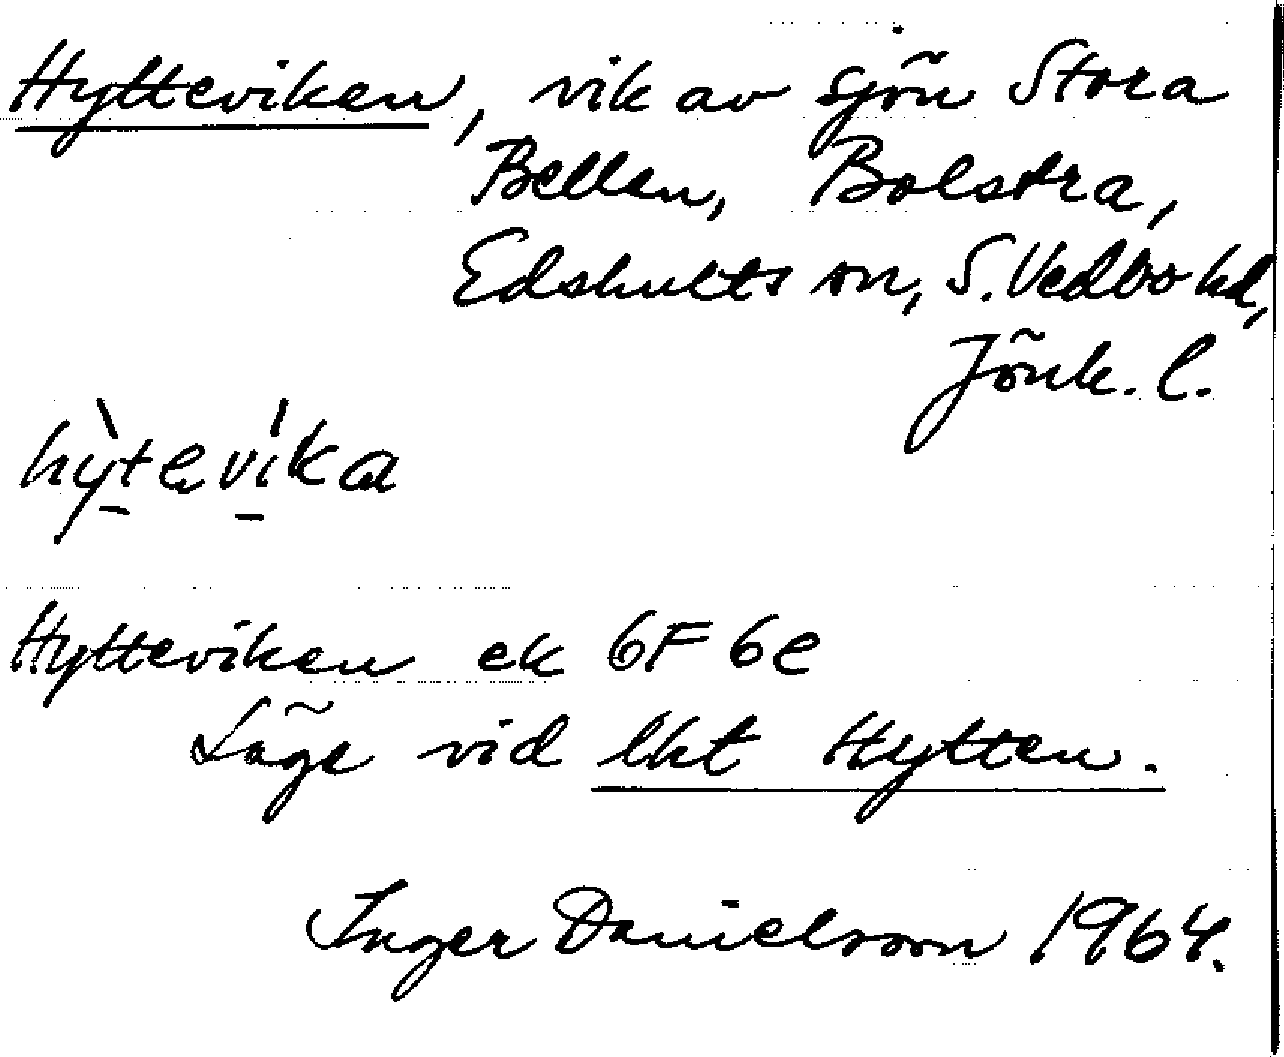 Hytteviken, vik av sjön Stora
Bellen, Bolstra,
Edshults sn, S. Vedbo hd,
Jönk. l.
hỳ̱teví̱ka
Hytteviken ek 6F 6e
Läge vid lkt Hytten.
Inger Danielsson 1964.